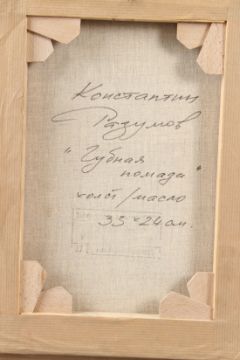 Константин
Разумов
"Губная
помада"
холст/масло
33×24см.